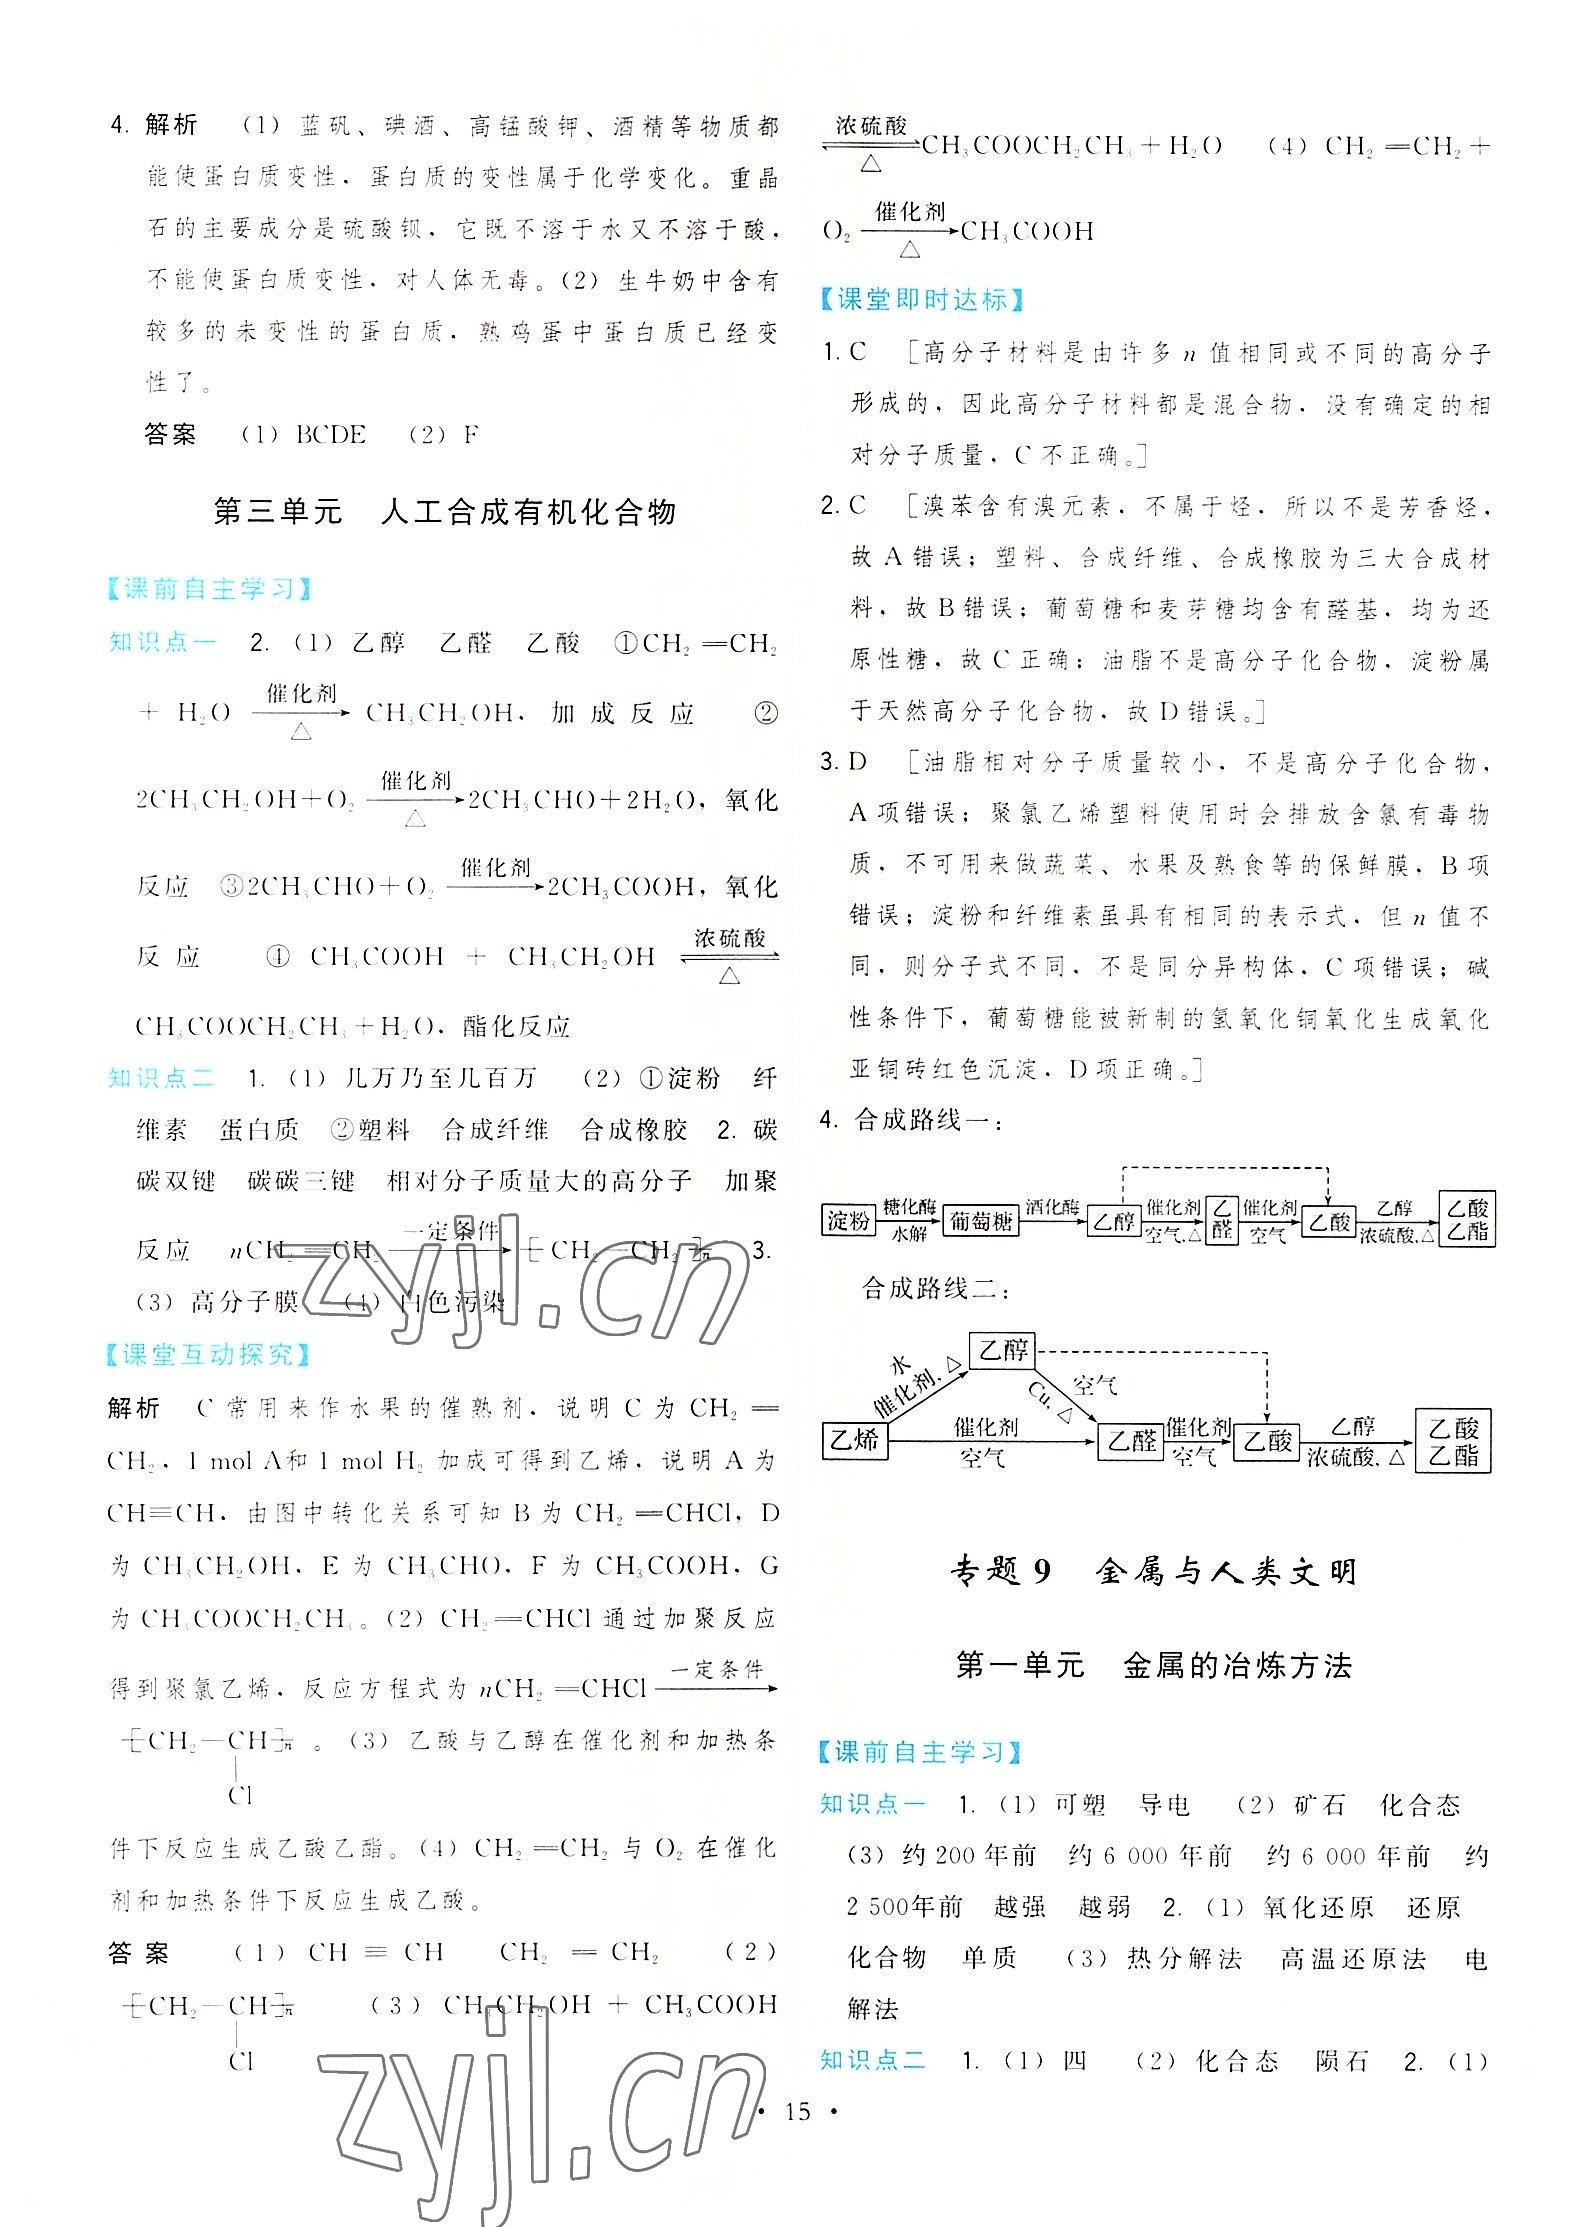 4. 解析 (1) 蓝矾、碘酒、高锰酸钾、酒精等物质都
能使蛋白质变性，蛋白质的变性属于化学变化。重晶
石的主要成分是硫酸钡，它既不溶于水又不溶于酸，
不能使蛋白质变性，对人体无毒。(2) 生牛奶中含有
较多的未变性的蛋白质，熟鸡蛋中蛋白质已经变
性了。
答案 (1) BCDE (2) F
第三单元 人工合成有机化合物
【课前自主学习】
知识点一 2. (1) 乙醇 乙醛 乙酸 ①CH₂═CH₂
+ H₂O 催化剂→△ CH₃CH₂OH，加成反应 ②
2CH₃CH₂OH+O₂ 催化剂→△ 2CH₃CHO+2H₂O，氧化
反应 ③2CH₃CHO+O₂ 催化剂→ 2CH₃COOH，氧化
反应 ④ CH₃COOH + CH₃CH₂OH 浓硫酸⇌△
CH₃COOCH₂CH₃+H₂O，酯化反应
知识点二 1. (1) 几万乃至几百万 (2) ①淀粉 纤
维素 蛋白质 ②塑料 合成纤维 合成橡胶 2. 碳
碳双键 碳碳三键 相对分子质量大的高分子 加聚
反应 nCH₂═CH₂ 一定条件→ ⁅CH₂—CH₂⁆n 3.
(3) 高分子膜 (4) 白色污染
【课堂互动探究】
解析 C 常用来作水果的催熟剂，说明 C 为 CH₂═
CH₂，1 mol A和 1 mol H₂ 加成可得到乙烯，说明 A 为
CH≡CH，由图中转化关系可知 B 为 CH₂═CHCl，D
为 CH₃CH₂OH，E 为 CH₃CHO，F 为 CH₃COOH，G
为 CH₃COOCH₂CH₃。(2) CH₂═CHCl 通过加聚反应
得到聚氯乙烯，反应方程式为 nCH₂═CHCl 一定条件→
⁅CH₂—CH⁆n。(3) 乙酸与乙醇在催化剂和加热条
Cl
件下反应生成乙酸乙酯。(4) CH₂═CH₂ 与 O₂ 在催化
剂和加热条件下反应生成乙酸。
答案 (1) CH≡CH CH₂═CH₂ (2)
⁅CH₂—CH⁆n (3) CH₃CH₂OH + CH₃COOH
Cl
浓硫酸⇌△ CH₃COOCH₂CH₃+H₂O (4) CH₂═CH₂+
O₂ 催化剂→△ CH₃COOH
【课堂即时达标】
1. C [高分子材料是由许多 n 值相同或不同的高分子
形成的，因此高分子材料都是混合物，没有确定的相
对分子质量，C 不正确。]
2. C [溴苯含有溴元素，不属于烃，所以不是芳香烃，
故 A 错误；塑料、合成纤维、合成橡胶为三大合成材
料，故 B 错误；葡萄糖和麦芽糖均含有醛基，均为还
原性糖，故 C 正确；油脂不是高分子化合物，淀粉属
于天然高分子化合物，故 D 错误。]
3. D [油脂相对分子质量较小，不是高分子化合物，
A 项错误；聚氯乙烯塑料使用时会排放含氯有毒物
质，不可用来做蔬菜、水果及熟食等的保鲜膜，B 项
错误；淀粉和纤维素虽具有相同的表示式，但 n 值不
同，则分子式不同，不是同分异构体，C 项错误；碱
性条件下，葡萄糖能被新制的氢氧化铜氧化生成氧化
亚铜砖红色沉淀，D 项正确。]
4. 合成路线一：
淀粉 糖化酶→水解 葡萄糖 酒化酶→ 乙醇 催化剂→空气,△ 乙醛 催化剂→空气 乙酸 乙醇→浓硫酸,△ 乙酸乙酯
合成路线二：
水 催化剂,△ 乙醇 Cu,△ 空气
乙烯 催化剂→空气 乙醛 催化剂→空气 乙酸 乙醇→浓硫酸,△ 乙酸乙酯
专题 9 金属与人类文明
第一单元 金属的冶炼方法
【课前自主学习】
知识点一 1. (1) 可塑 导电 (2) 矿石 化合态
(3) 约 200 年前 约 6 000 年前 约 6 000 年前 约
2 500年前 越强 越弱 2. (1) 氧化还原 还原
化合物 单质 (3) 热分解法 高温还原法 电
解法
知识点二 1. (1) 四 (2) 化合态 陨石 2. (1)
• 15 •
zyjl.cn
zyjl.cn